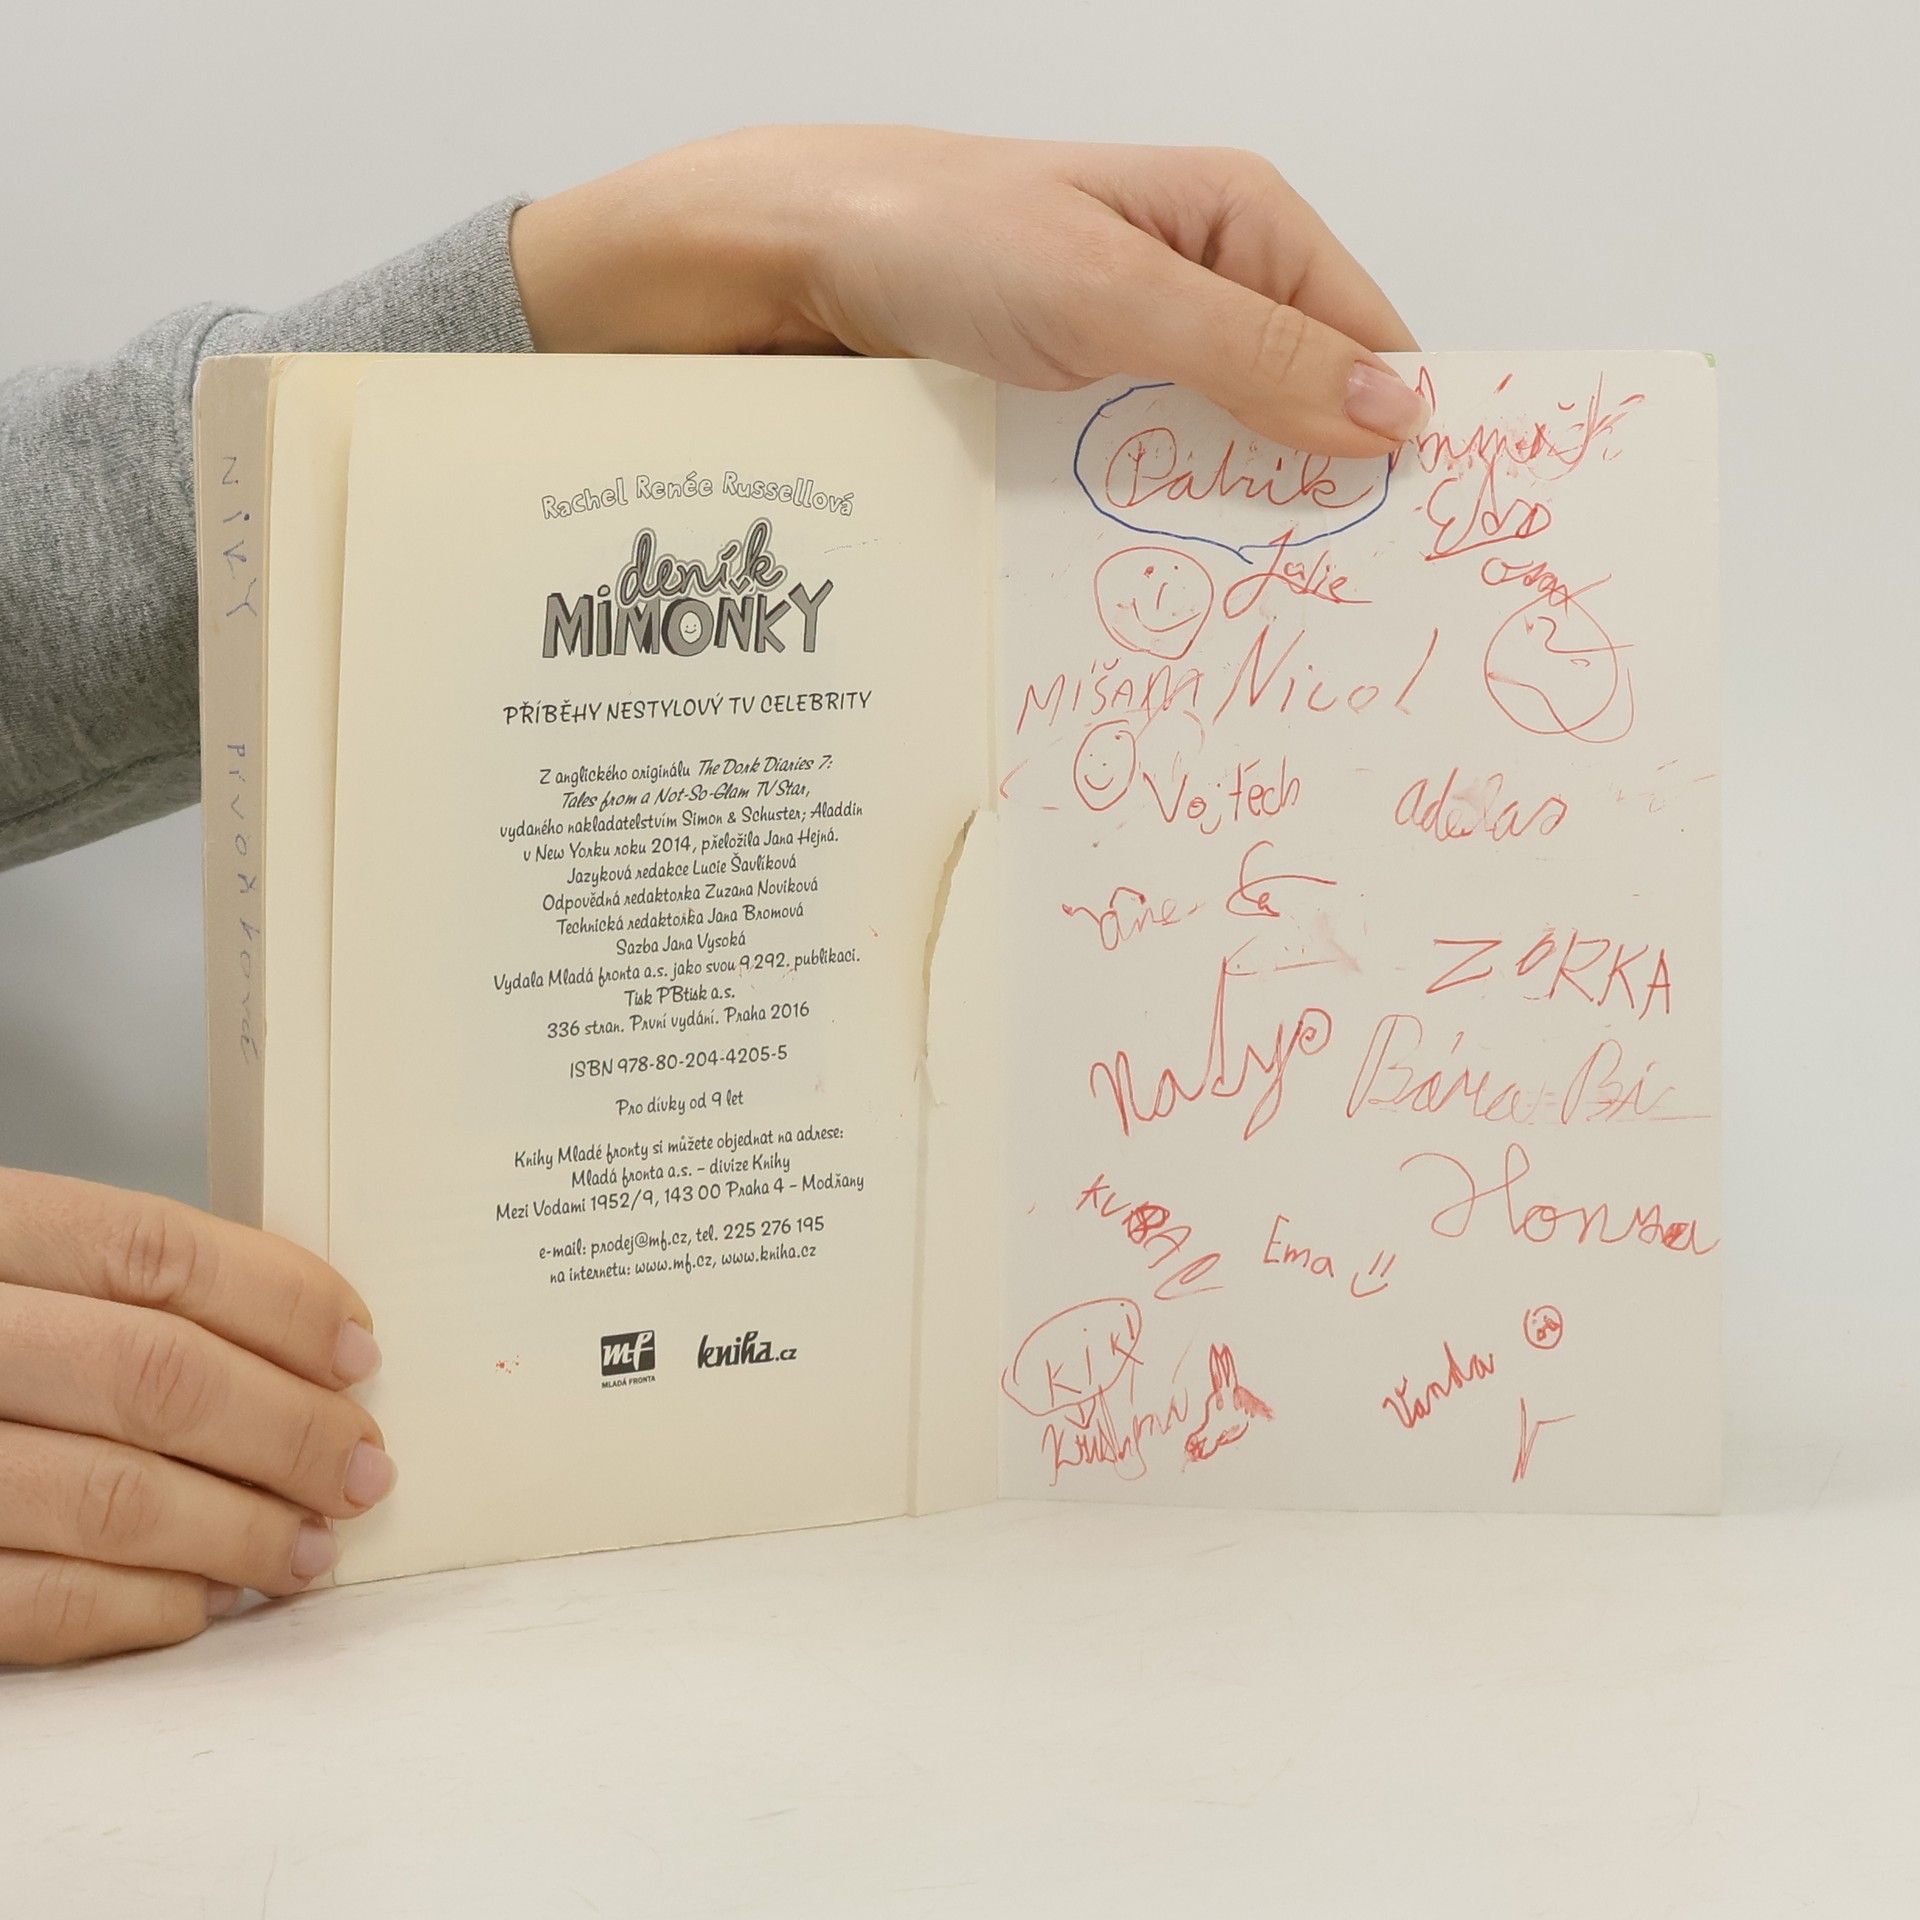 NiKY
Rachel Renée Russellová
deník
MIMOŇKY
PŘÍBĚHY NESTYLOVÝ TV CELEBRITY
Z anglického originálu The Dork Diaries 7:
Tales from a Not-So-Glam TV Star,
vydaného nakladatelstvím Simon & Schuster; Aladdin
v New Yorku roku 2014, přeložila Jana Hejná.
Jazyková redakce Lucie Šavlíková
Odpovědná redaktorka Zuzana Novíková
Technická redaktorka Jana Bromová
Sazba Jana Vysoká
Vydala Mladá fronta a.s. jako svou 9 292. publikaci.
Tisk PBtisk a.s.
336 stran. První vydání. Praha 2016
ISBN 978-80-204-4205-5
Pro dívky od 9 let
Knihy Mladé fronty si můžete objednat na adrese:
Mladá fronta a.s. – divize Knihy
Mezi Vodami 1952/9, 143 00 Praha 4 – Modřany
e-mail: prodej@mf.cz, tel. 225 276 195
na internetu: www.mf.cz, www.kniha.cz
mf
MLADÁ FRONTA
kniha.cz
Patrik
Nicol
Vojtěch
ZORKA
Bára Bi
Honza
Ema
KiKi
Vanda